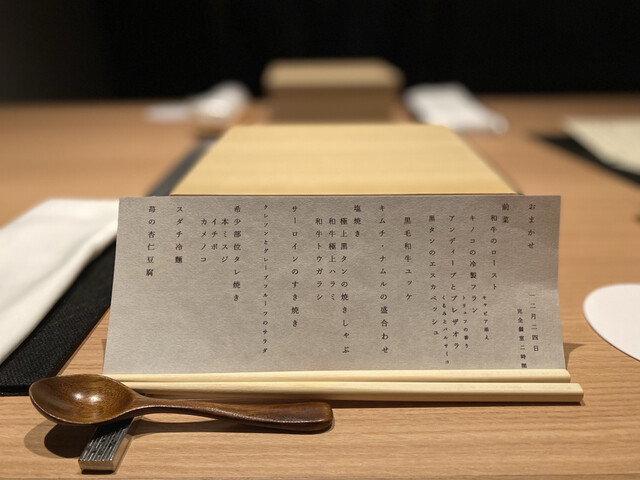 おまかせ 一二月二四日
完全個室二時間
前菜
和牛のロースト
キャビア添え
キノコの冷製フラン
トリュフの香り
アンディーブとブレザオラ
くるみとバルサミコ
黒タンのエスカベッシュ
黒毛和牛ユッケ
キムチ・ナムルの盛合わせ
塩焼き
極上黒タンの焼きしゃぶ
和牛極上ハラミ
和牛トウガラシ
サーロインのすき焼き
クレソンとグレープフルーツのサラダ
希少部位タレ焼き
本ミスジ
イチボ
カメノコ
スダチ冷麺
苺の杏仁豆腐